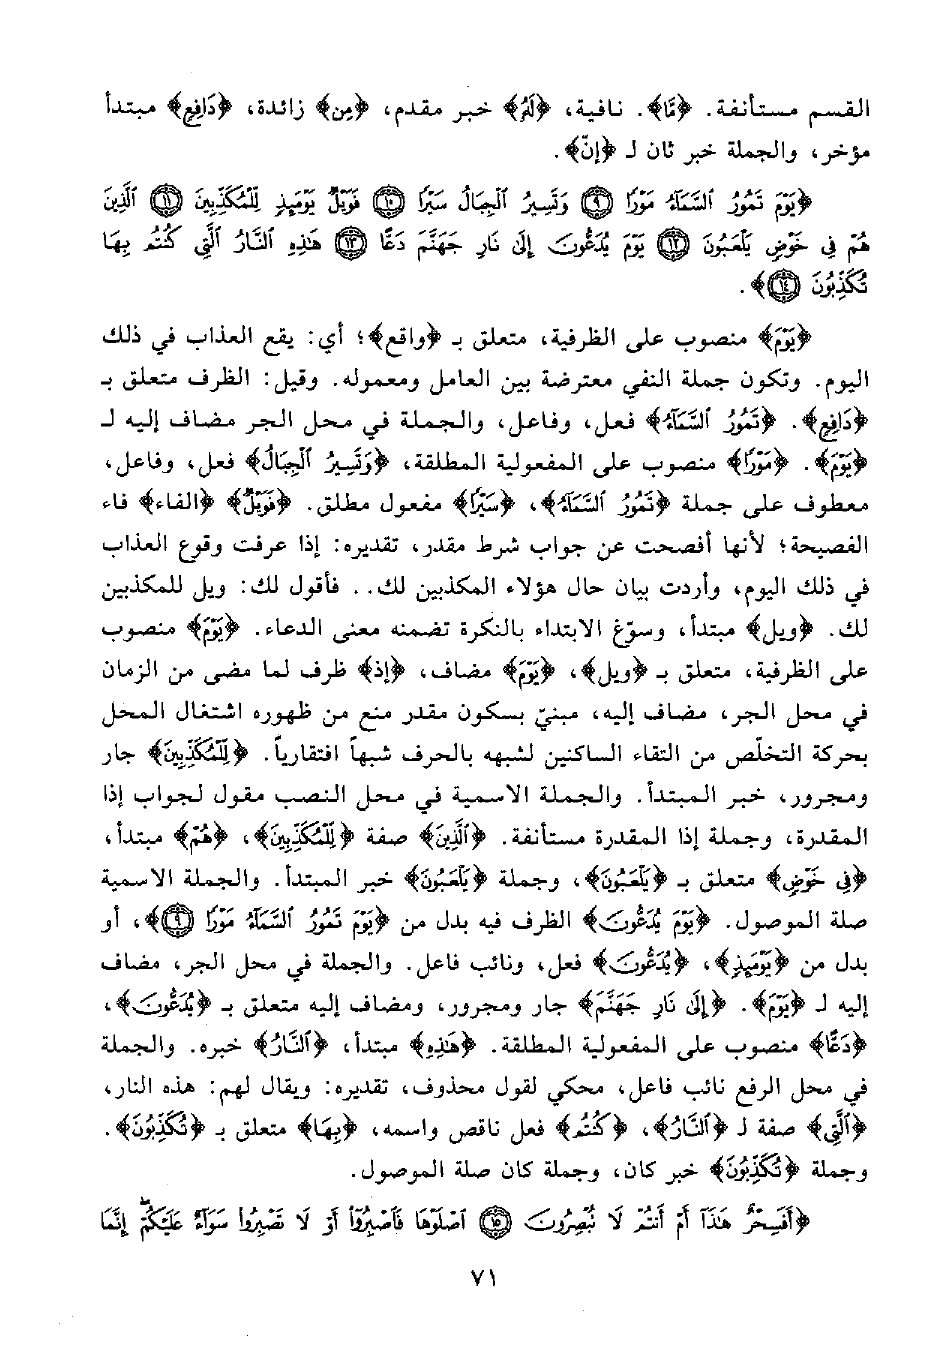 القسم مستأنفة. ﴿مَّا﴾. نافية، ﴿لَهُ﴾ خبر مقدم، ﴿مِن﴾ زائدة، ﴿دَافِعٍ﴾ مبتدأ
مؤخر، والجملة خبر ثان لـ ﴿إنّ﴾.
﴿يَوْمَ تَمُورُ ٱلسَّمَآءُ مَوْرًا ٩ وَتَسِيرُ ٱلْجِبَالُ سَيْرًا ١٠ فَوَيْلٌ يَوْمَئِذٍ لِّلْمُكَذِّبِينَ ١١ ٱلَّذِينَ
هُمْ فِى خَوْضٍ يَلْعَبُونَ ١٢ يَوْمَ يُدَعُّونَ إِلَىٰ نَارِ جَهَنَّمَ دَعًّا ١٣ هَٰذِهِ ٱلنَّارُ ٱلَّتِى كُنتُم بِهَا
تُكَذِّبُونَ ١٤﴾.
﴿يَوْمَ﴾ منصوب على الظرفية، متعلق بـ ﴿واقع﴾؛ أي: يقع العذاب في ذلك
اليوم. وتكون جملة النفي معترضة بين العامل ومعموله. وقيل: الظرف متعلق بـ
﴿دَافِعٍ﴾. ﴿تَمُورُ ٱلسَّمَآءُ﴾ فعل، وفاعل، والجملة في محل الجر مضاف إليه لـ
﴿يَوْمَ﴾. ﴿مَوْرًا﴾ منصوب على المفعولية المطلقة، ﴿وَتَسِيرُ ٱلْجِبَالُ﴾ فعل، وفاعل،
معطوف على جملة ﴿تَمُورُ ٱلسَّمَآءُ﴾، ﴿سَيْرًا﴾ مفعول مطلق. ﴿فَوَيْلٌ﴾ ﴿الفاء﴾ فاء
الفصيحة؛ لأنها أفصحت عن جواب شرط مقدر، تقديره: إذا عرفت وقوع العذاب
في ذلك اليوم، وأردت بيان حال هؤلاء المكذبين لك.. فأقول لك: ويل للمكذبين
لك. ﴿ويل﴾ مبتدأ، وسوّغ الابتداء بالنكرة تضمنه معنى الدعاء. ﴿يَوْمَ﴾ منصوب
على الظرفية، متعلق بـ ﴿ويل﴾، ﴿يَوْمَ﴾ مضاف، ﴿إذ﴾ ظرف لما مضى من الزمان
في محل الجر، مضاف إليه، مبنيّ بسكون مقدر منع من ظهوره اشتغال المحل
بحركة التخلّص من التقاء الساكنين لشبهه بالحرف شبهاً افتقارياً. ﴿لِّلْمُكَذِّبِينَ﴾ جار
ومجرور، خبر المبتدأ. والجملة الاسمية في محل النصب مقول لجواب إذا
المقدرة، وجملة إذا المقدرة مستأنفة. ﴿ٱلَّذِينَ﴾ صفة ﴿لِّلْمُكَذِّبِينَ﴾، ﴿هُمْ﴾ مبتدأ،
﴿فِى خَوْضٍ﴾ متعلق بـ ﴿يَلْعَبُونَ﴾، وجملة ﴿يَلْعَبُونَ﴾ خبر المبتدأ. والجملة الاسمية
صلة الموصول. ﴿يَوْمَ يُدَعُّونَ﴾ الظرف فيه بدل من ﴿يَوْمَ تَمُورُ ٱلسَّمَآءُ مَوْرًا ٩﴾، أو
بدل من ﴿يَوْمَئِذٍ﴾، ﴿يُدَعُّونَ﴾ فعل، ونائب فاعل. والجملة في محل الجر، مضاف
إليه لـ ﴿يَوْمَ﴾. ﴿إِلَىٰ نَارِ جَهَنَّمَ﴾ جار ومجرور، ومضاف إليه متعلق بـ ﴿يُدَعُّونَ﴾،
﴿دَعًّا﴾ منصوب على المفعولية المطلقة. ﴿هَٰذِهِ﴾ مبتدأ، ﴿ٱلنَّارُ﴾ خبره. والجملة
في محل الرفع نائب فاعل، محكي لقول محذوف، تقديره: ويقال لهم: هذه النار،
﴿ٱلَّتِى﴾ صفة لـ ﴿ٱلنَّارُ﴾، ﴿كُنتُم﴾ فعل ناقص واسمه، ﴿بِهَا﴾ متعلق بـ ﴿تُكَذِّبُونَ﴾.
وجملة ﴿تُكَذِّبُونَ﴾ خبر كان، وجملة كان صلة الموصول.
﴿أَفَسِحْرٌ هَٰذَآ أَمْ أَنتُمْ لَا تُبْصِرُونَ ١٥ ٱصْلَوْهَا فَٱصْبِرُوٓا۟ أَوْ لَا تَصْبِرُوا۟ سَوَآءٌ عَلَيْكُمْ ۖ إِنَّمَا
٧١